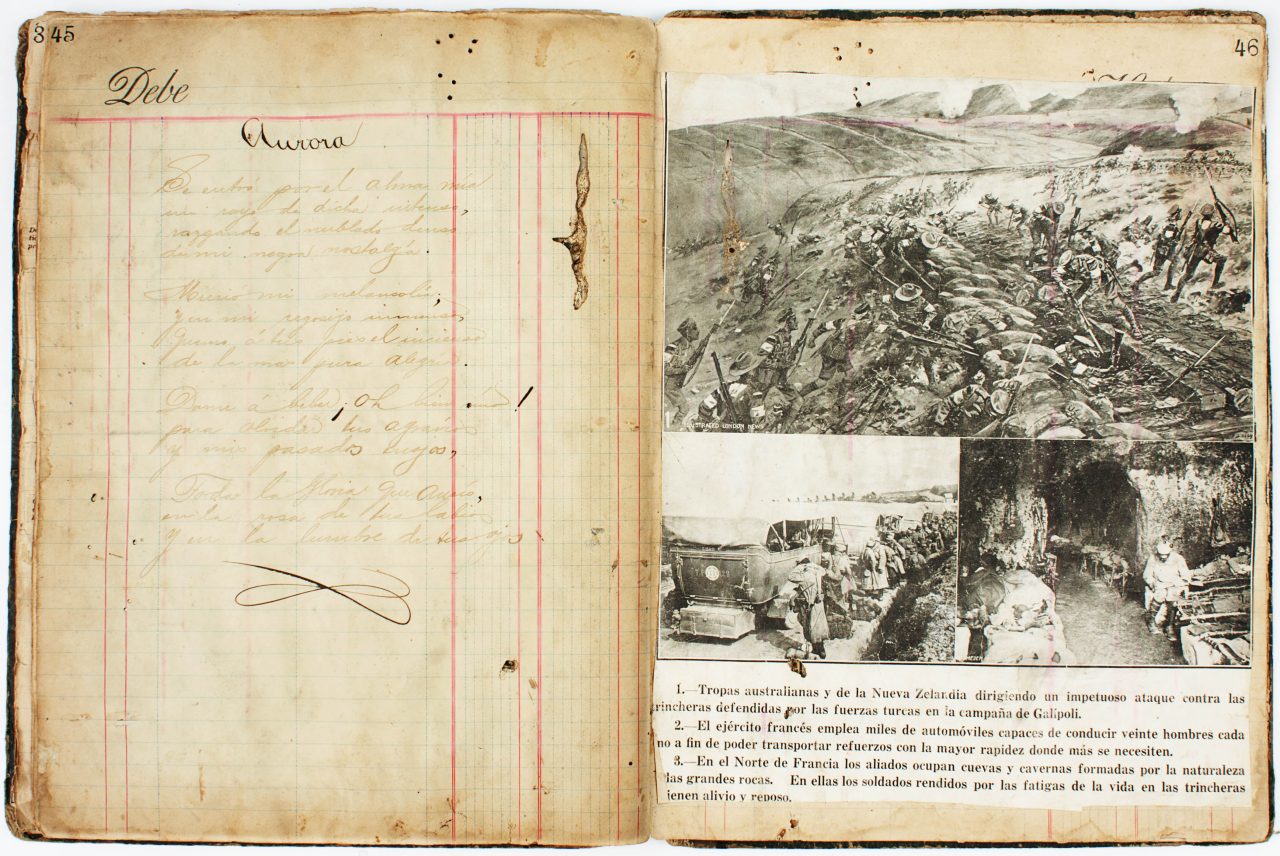 345
Debe
Aurora
Se entró por el alma mia
un rayo de dicha intenso,
razgando el nublado denso
de mi negra nostalgia.
Murió mi melancolia,
y en mi regosijo inmenso,
á tus pies el incienso
de la mas pura alegria.
Dame á beber ¡Oh bien mio!
para
y mis pasados enojos,
Toda la gloria que ansio,
en la rosa de tus labios
Y en la lumbre de tus ojos
46
ILLUSTRATED LONDON NEWS
1.—Tropas australianas y de la Nueva Zelandia dirigiendo un impetuoso ataque contra las
rincheras defendidas por las fuerzas turcas en la campaña de Galípoli.
2.—El ejército francés emplea miles de automóviles capaces de conducir veinte hombres cada
no a fin de poder transportar refuerzos con la mayor rapidez donde más se necesiten.
3.—En el Norte de Francia los aliados ocupan cuevas y cavernas formadas por la naturaleza
las grandes rocas. En ellas los soldados rendidos por las fatigas de la vida en las trincheras
ienen alivio y reposo.